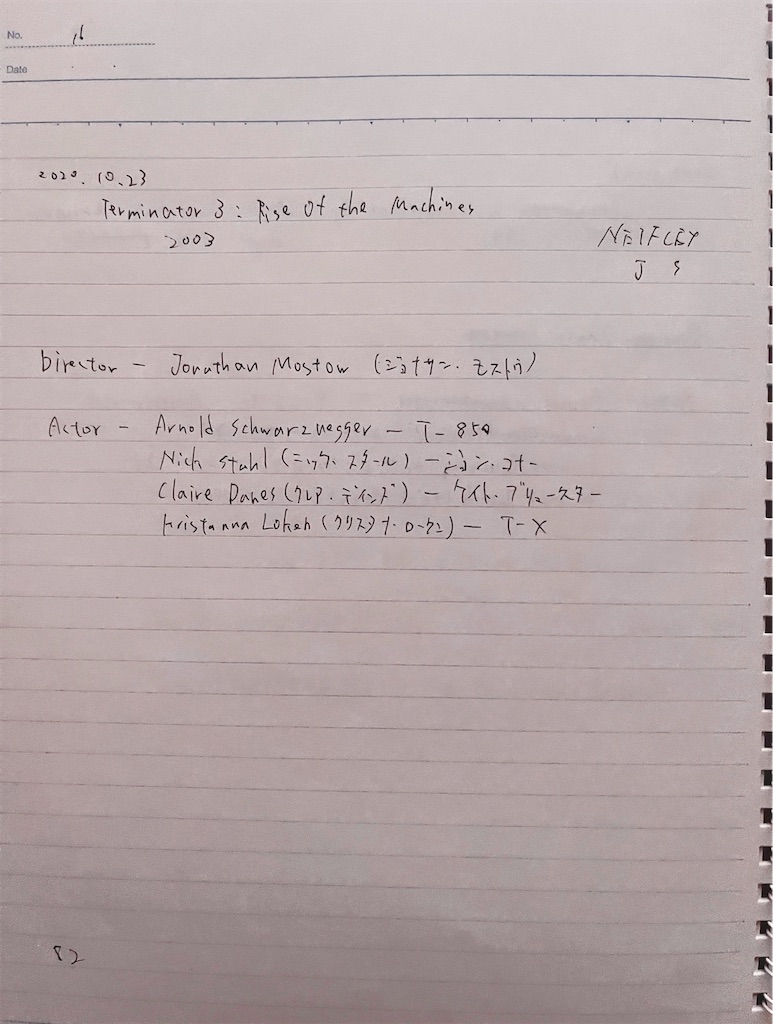 No. 16
Date
2020.10.23
Terminator 3 : Rise Of the Machines
2003
NETFLIX
J S
Director - Jonathan Mostow (ジョナサン・モストウ)
Actor - Arnold Schwarznegger - T-850
Nick Stahl (ニック・スタール) - ジョン・コナー
Claire Danes (クレア・デインズ) - ケイト・ブリュースター
Kristanna Loken (クリスタナ・ローケン) - T-X
82